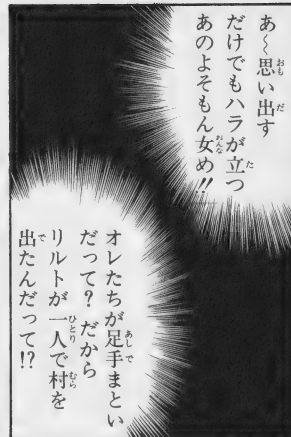 あ～思い出す
だけでもハラが立つ
あのよそもん女め!!
オレたちが足手まとい
だって？だから
リルトが一人で村を
出たんだって!?